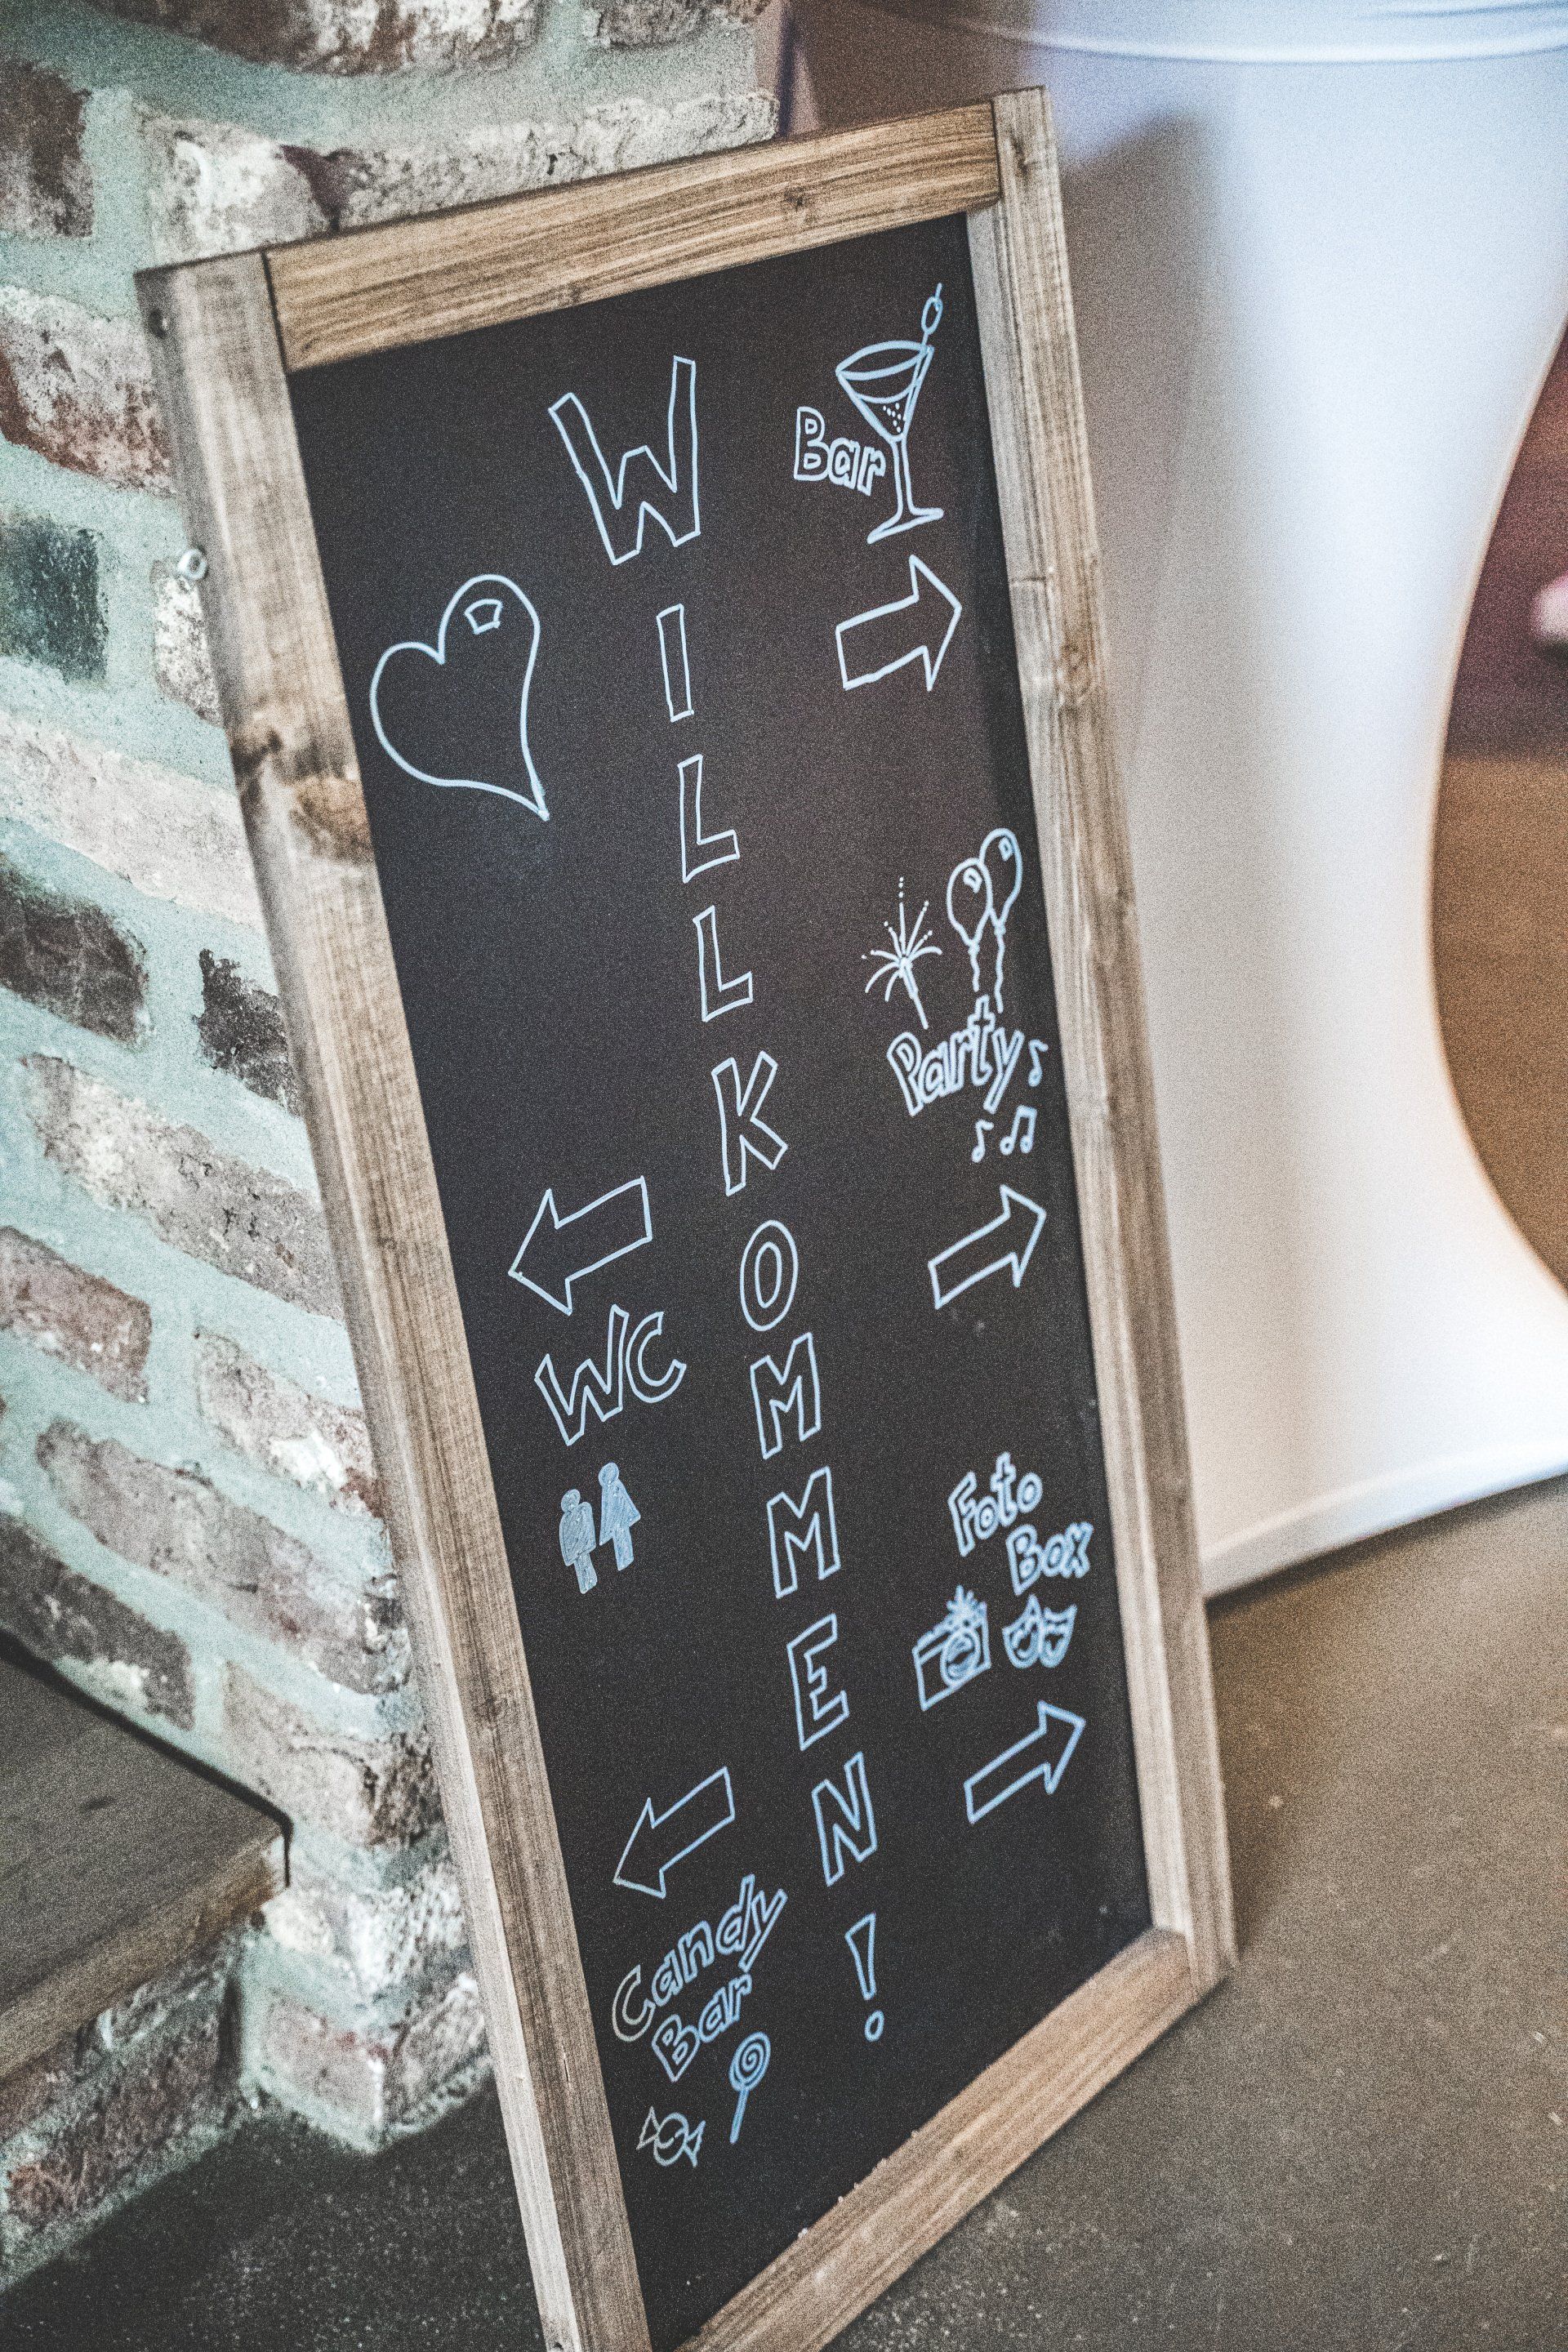 WILLKOMMEN!
Bar
Party
Foto
Box
WC
Candy
Bar